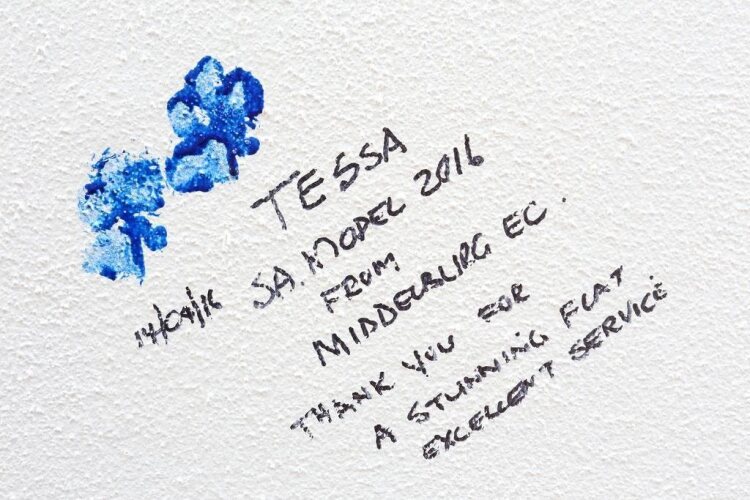 TESSA
14/09/16 SA. MODEL 2016
FROM
MIDDELBURG EC.
THANK YOU FOR
A STUNNING FLAT
EXCELLENT SERVICE